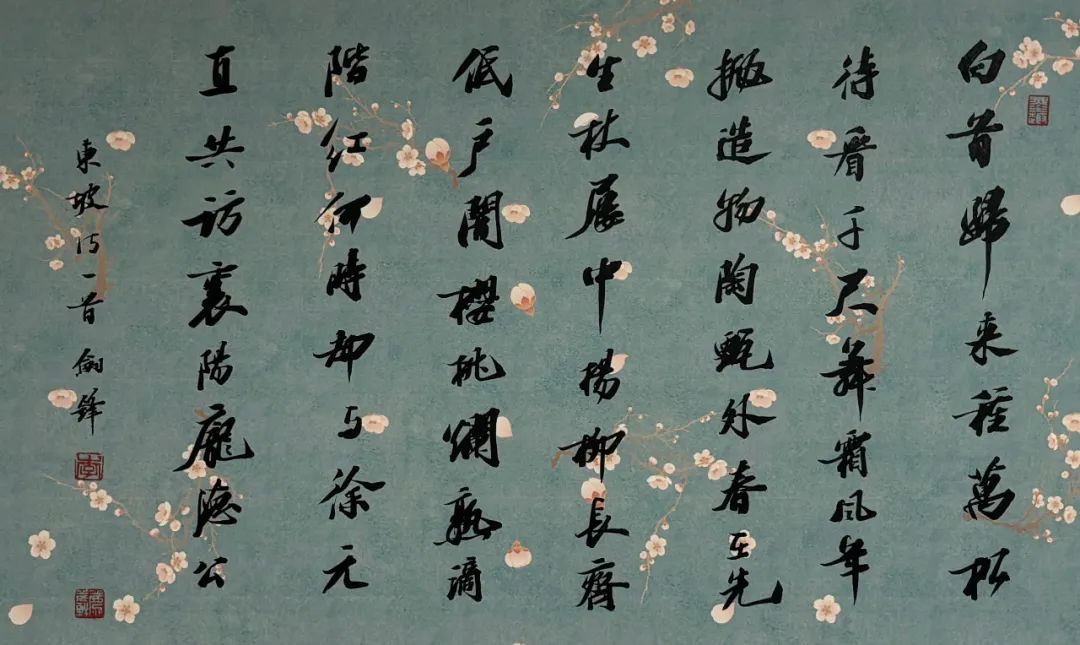 白首歸来種萬松
待看千尺舞霜風年
拋造物陶甄外春在先
生杖屨中楊柳長齊
低戶闇櫻桃爛熟滴
階紅何時却与徐元
直共訪襄陽龐德公
東坡詩一首 劍鋒